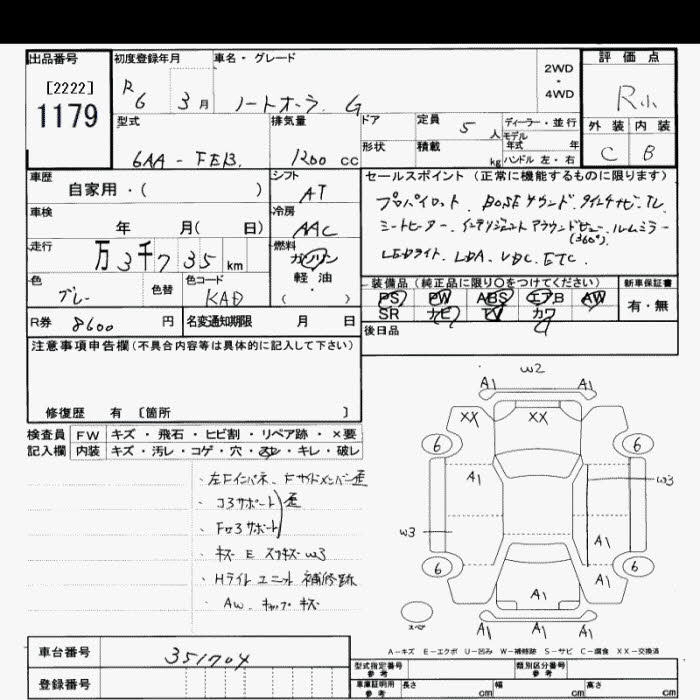 出品番号
[2222]
1179
初度登録年月
R 6 3月
車名・グレード
ノートオーラ G
2WD
・
4WD
評価点
R小
外装 内装
C B
型式
6AA-FE13
排気量
1200 cc
ドア
形状
定員 5 人
積載 kg
ディーラー・並行
モデル
年式 年
ハンドル 左・右
車歴
自家用・( )
シフト
AT
セールスポイント (正常に機能するものに限ります)
プロパイロット. BOSEサウンド. 9インチナビ. TV
ミートヒーター. インテリジェントアラウンドビュー. ルムミラー
(360°)
LEDライト. LDA. VDC. ETC.
車検
年 月( 日)
冷房
AAC
走行
万3千735 km
燃料
ガソリン
軽・油
( )
色
グレー
色替
色コード
KAD
装備品 (純正品に限り○をつけてください)
PS PW ABS エアB AW
SR ナビ TV カワ
新車保証書
有・無
R券 8600 円
名変通知期限 月 日
後日品
注意事項申告欄(不具合内容等は具体的に記入して下さい)
修復歴 有 〔箇所 〕
検査員
記入欄
FW キズ・飛石・ヒビ割・リペア跡・×要
内装 キズ・汚レ・コゲ・穴・スレ・キレ・破レ
・左Fインパネ、Fサイドメンバー歪
・コアサポート 歪
・Fクロスサポート
・キズ E スリキズ W3
・Hライトユニット 補修跡
・AW. キャップ キズ
W2
A1 A1
XX XX
6 6
A1
W3
W3
A1
6 A1 6
A1
スペア
A1 A1 A1
A-キズ E-エクボ U-凹み W-補修跡 S-サビ C-腐食 XX-交換済
車台番号
351704
登録番号
型式指定番号
参考
類別区分番号
参考
車庫証明用
参考
長さ cm
幅 cm
高さ cm